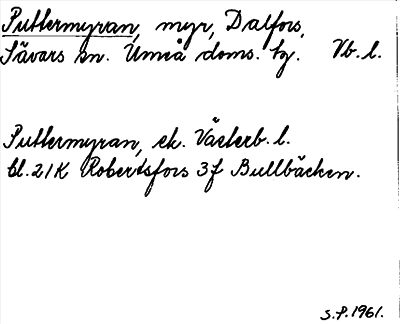 Puttermyran, myr, Dalfors,
Sävars sn. Umeå doms. tg. Vb. l.
Puttermyran, ek. Västerb. l.
bl. 21K Robertsfors 3f Bullbäcken.
S.P. 1961.